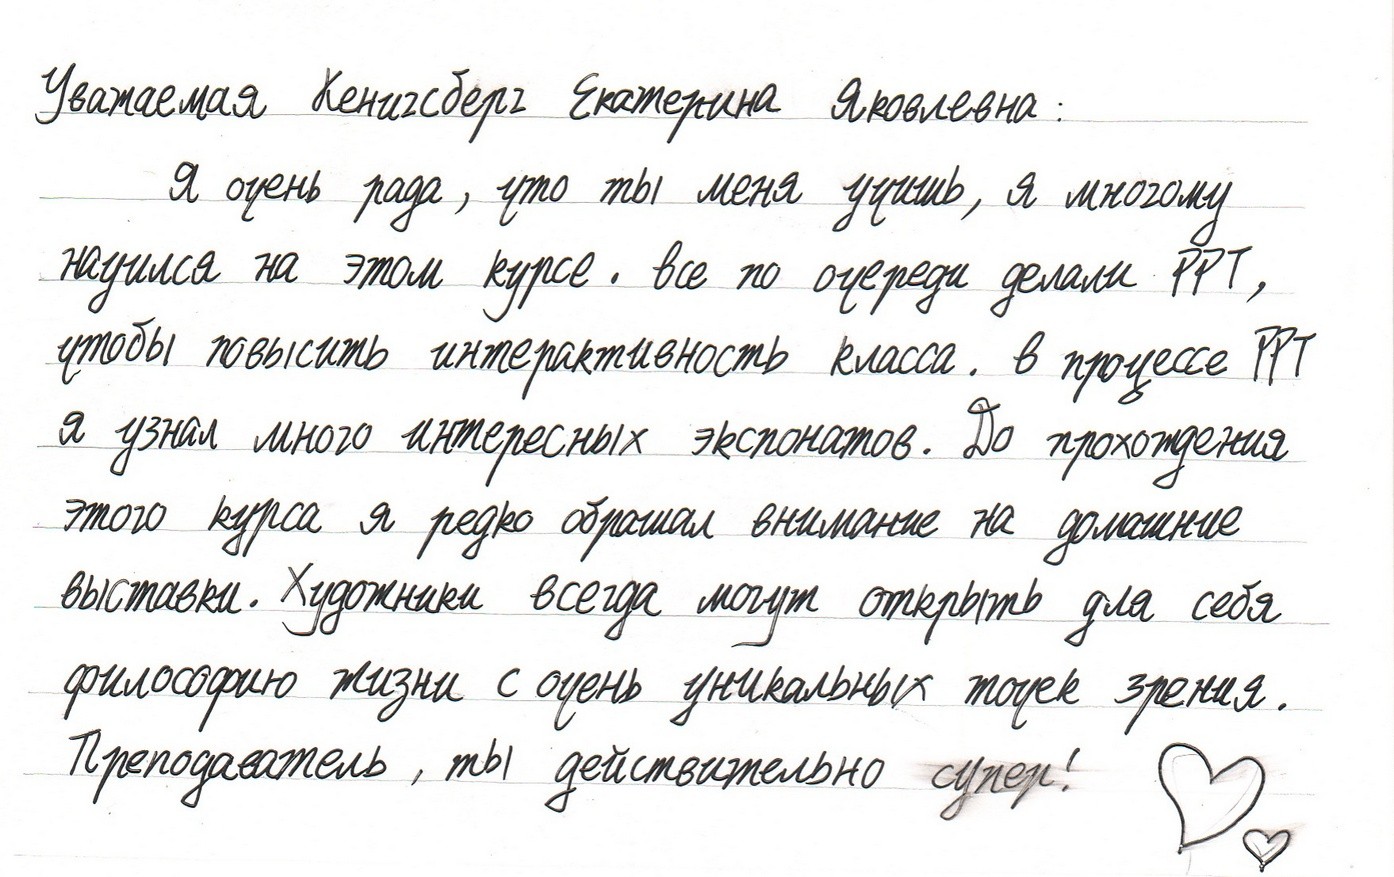 Уважаемая Кенигсберг Екатерина Яковлевна:
Я очень рада, что ты меня учишь, я многому
научился на этом курсе. все по очереди делали PPT,
чтобы повысить интерактивность класса. в процессе PPT
я узнал много интересных экспонатов. До прохождения
этого курса я редко обращал внимание на домашние
выставки. Художники всегда могут открыть для себя
философию жизни с очень уникальных точек зрения.
Преподаватель, ты действительно супер!